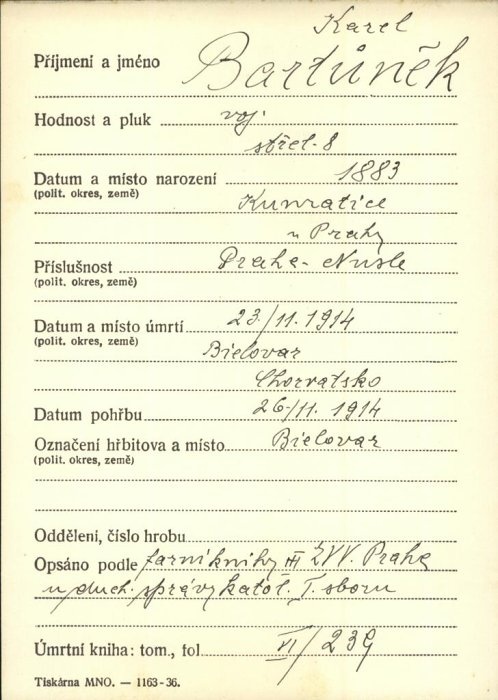 Karel
Příjmení a jméno Bartůněk
Hodnost a pluk voj.
střel. 8
Datum a místo narození 1883
(polit. okres, země) Kunratice
u Prahy
Příslušnost Praha - Nusle
(polit. okres, země)
Datum a místo úmrtí 23./11. 1914
(polit. okres, země) Bielovar
Chorvatsko
Datum pohřbu 26./11. 1914
Označení hřbitova a místo Bielovar
(polit. okres, země)
Oddělení, číslo hrobu
Opsáno podle farní knihy III ZVV. Praha
u duch. správy katol. I. sboru
Úmrtní kniha: tom., fol. VI/239
Tiskárna MNO. — 1163-36.